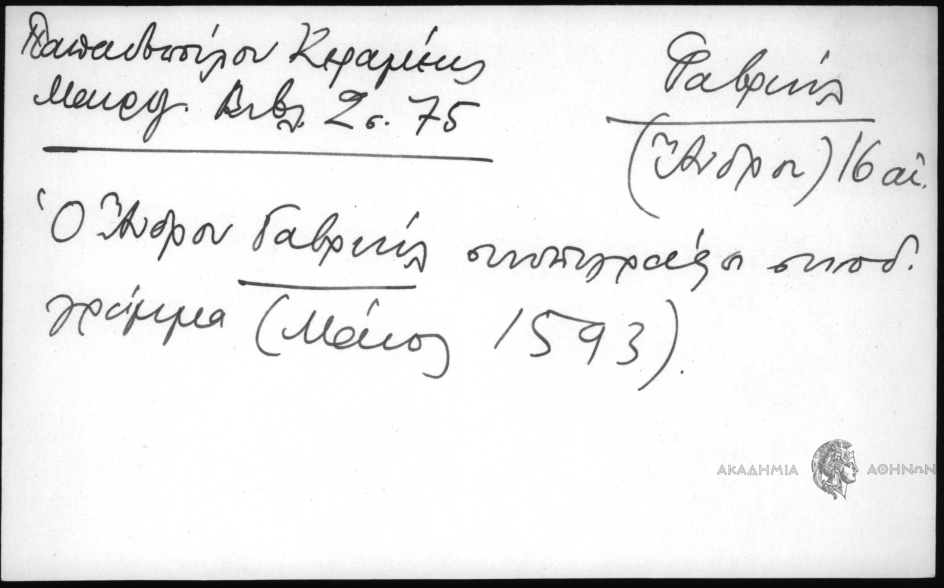 Παπαδοπούλου Κεραμέως
Μαυρογ. Βιβλ. 2 σ. 75
Γαβριήλ
(Ἄνδρου) 16 αἰ.
Ὁ Ἄνδρου Γαβριήλ συνυπογράφει συνοδ.
γράμμα (Μάιος 1593).
ΑΚΑΔΗΜΙΑ ΑΘΗΝΩΝ